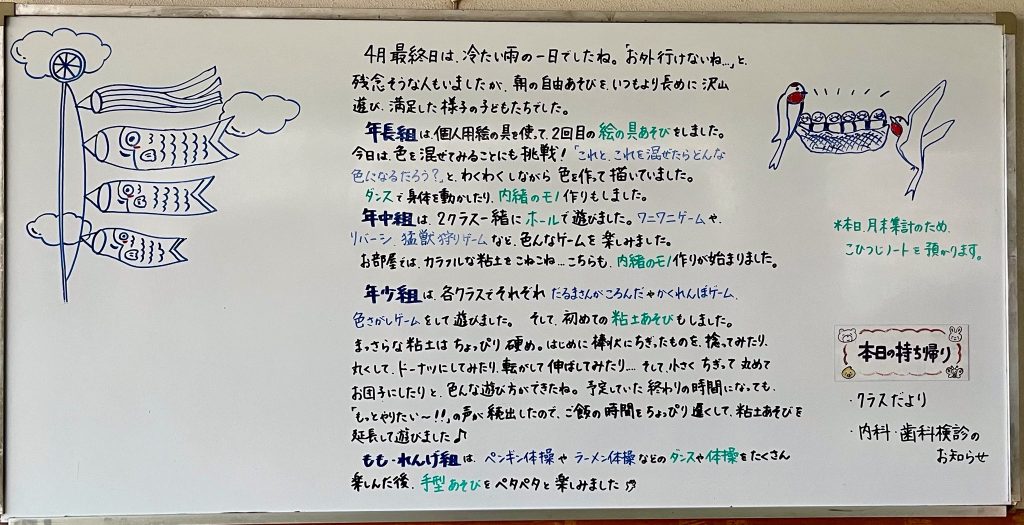 4月最終日は、冷たい雨の一日でしたね。「お外行けないね…」と、
残念そうな人もいましたが、朝の自由あそびを、いつもより長めに沢山
遊び、満足した様子の子どもたちでした。
年長組は、個人用絵の具を使って、2回目の絵の具あそびをしました。
今日は、色を混ぜてみることにも挑戦！「これと、これを混ぜたらどんな
色になるだろう？」と、わくわくしながら色を作って描いていました。
ダンスで身体を動かしたり、内緒のモノ作りもしました。
年中組は、2クラス一緒にホールで遊びました。ワニワニゲームや、
リバーシ、猛獣狩りゲームなど、色んなゲームを楽しみました。
お部屋では、カラフルな粘土をこねこね…こちらも、内緒のモノ作りが始まりました。
年少組は、各クラスでそれぞれだるまさんがころんだやかくれんぼゲーム、
色さがしゲームをして遊びました。そして、初めての粘土あそびもしました。
まっさらな粘土はちょっぴり硬め。はじめに棒状にちぎったものを、捻ってみたり、
丸くして、ドーナツにしてみたり、転がして伸ばしてみたり…。そして、小さくちぎって丸めて
お団子にしたりと、色んな遊び方ができたね。予定していた終わりの時間になっても、
「もっとやりたい〜！！」の声が続出したので、ご飯の時間をちょっぴり遅くして、粘土あそびを
延長して遊びました♪
もも・れんげ組は、ペンギン体操やラーメン体操などのダンスや体操をたくさん
楽しんだ後、手型あそびをペタペタと楽しみました
*本日、月末集計のため、
こひつじノートを預かります。
本日の持ち帰り
・クラスだより
・内科・歯科検診の
お知らせ